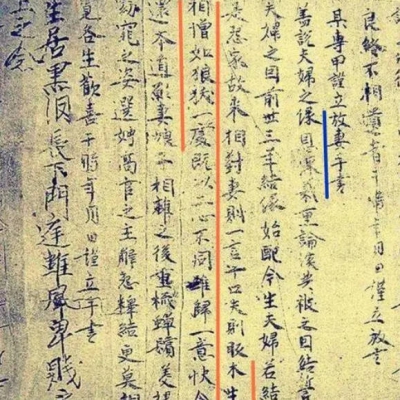 良緣不相遺者于時年月日謹立放書
某專甲謹立放妻手書
蓋說夫婦之緣恩深義重論談共被之因結誓
夫婦之因前世三年結緣始配今生夫婦若結
是怨家故來相對妻則一言十口夫則 木生
相憎如狼 一處既以二心不同難歸一意快
還本道願妻娘子相離之後重梳蟬鬢美掃
窕之姿選娉高官之主解怨釋結更莫相
各生歡喜于時年月日謹立手書
生居黑 長下門庭難 卑賤之
上之念